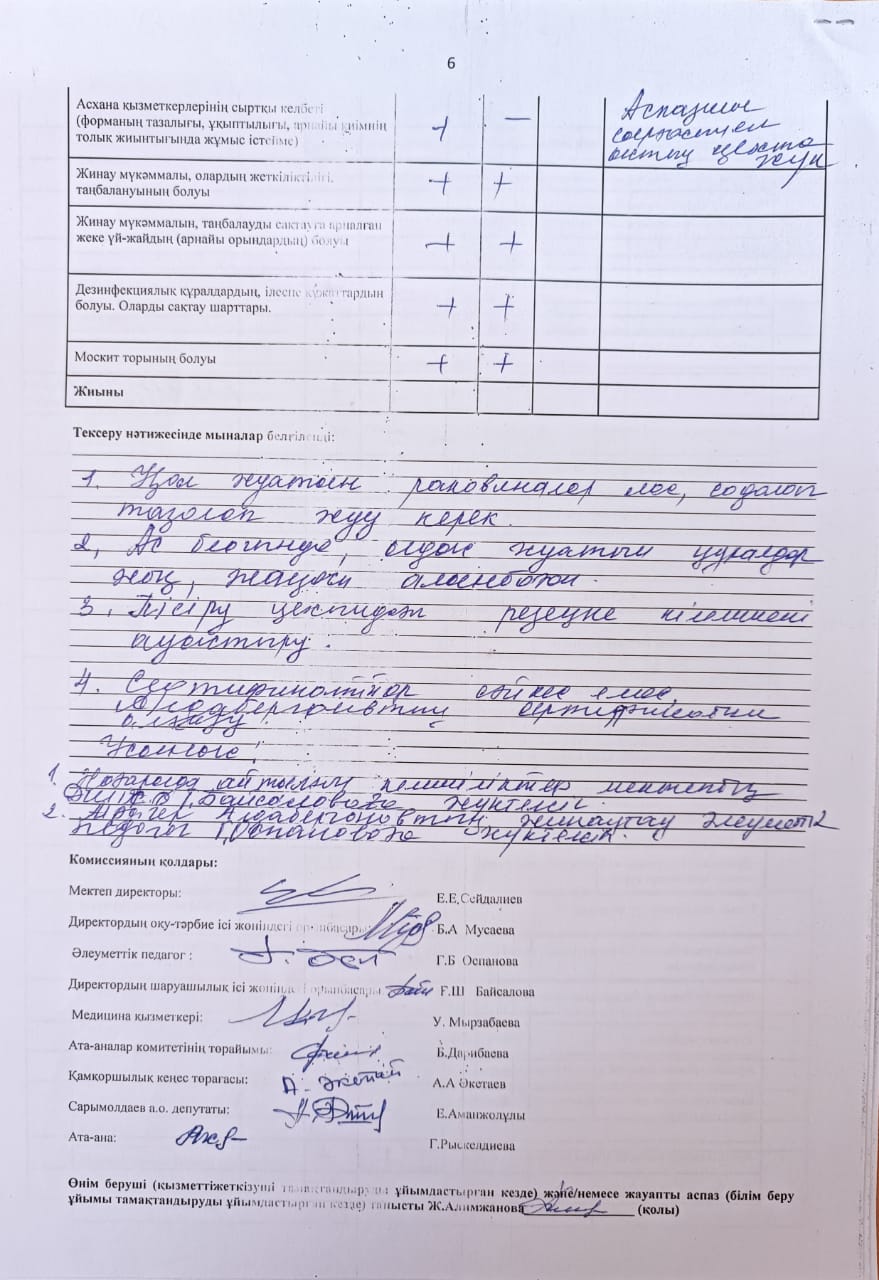 6
Асхана қызметкерлерінің сыртқы келбеті
(форманың тазалығы, ұқыптылығы, арнайы киімнің
толық жиынтығында жұмыс істейме)
+ —
Жинау мүкәммалы, олардың жеткіліктілігі,
таңбалануының болуы
+ +
Жинау мүкәммалын, таңбалауды сақтауға арналған
жеке үй-жайдың (арнайы орындардың) болуы
+ +
Дезинфекциялық құралдардың, ілеспе құжаттардың
болуы. Оларды сақтау шарттары.
+ +
Москит торының болуы
+ +
Жиыны
Тексеру нәтижесінде мыналар белгіленді:
1. Қол жуатын раковиналар лас, содалап
тазалап жуу керек.
2, Ас блогінде, ыдыс жуатын құралдар
жоқ,
3. Пісіру цехындағы резеңке кілемшені
ауыстыру.
4. Сертификаттар сәйкес емес
сертификатын
1. айтылған кемшіліктер мектептің
Г.Байсаловаға жүктелсін.
2.
педагог Г.Оспановаға жүктелсін.
Комиссияның қолдары:
Мектеп директоры: Е.Е.Сейдалиев
Директордың оқу-тәрбие ісі жөніндегі орынбасары Б.А Мусаева
Әлеуметтік педагог : Г.Б Оспанова
Директордың шаруашылық ісі жөніндегі орынбасары Ғ.Ш Байсалова
Медицина қызметкері: У. Мырзабаева
Ата-аналар комитетінің торайымы: Б.Дарибаева
Қамқоршылық кеңес торағасы: А. Әкетай А.А Әкетаев
Сарымолдаев а.о. депутаты: Е.Аманжолұлы
Ата-ана: Г.Рыскелдиева
Өнім беруші (қызметтіжеткізуші тамақтандыруды ұйымдастырған кезде) және/немесе жауапты аспаз (білім беру
ұйымы тамақтандыруды ұйымдастырған кезде) танысты Ж.Алимжанова (қолы)